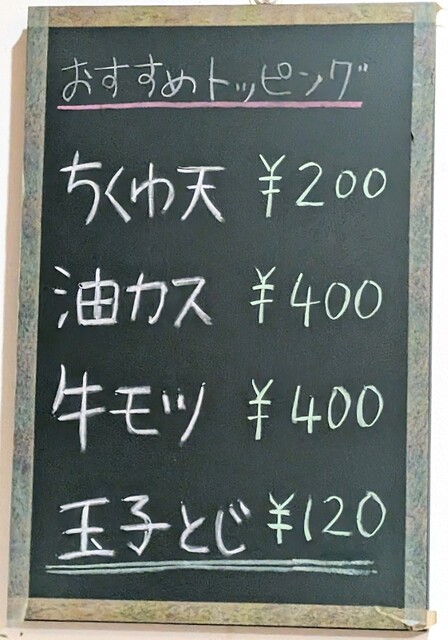 おすすめトッピング
ちくわ天 ¥200
油カス ¥400
牛モツ ¥400
玉子とじ ¥120